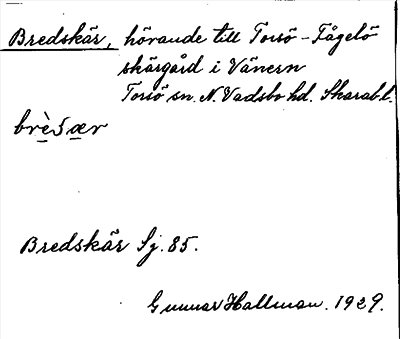 Bredskär, hörande till Torsö - Fågelö
skärgård i Vänern
Torsö sn. N. Vadsbo hd. Skarab.l.
Bredskär Sj. 85.
Gunnar Hallman. 1929.